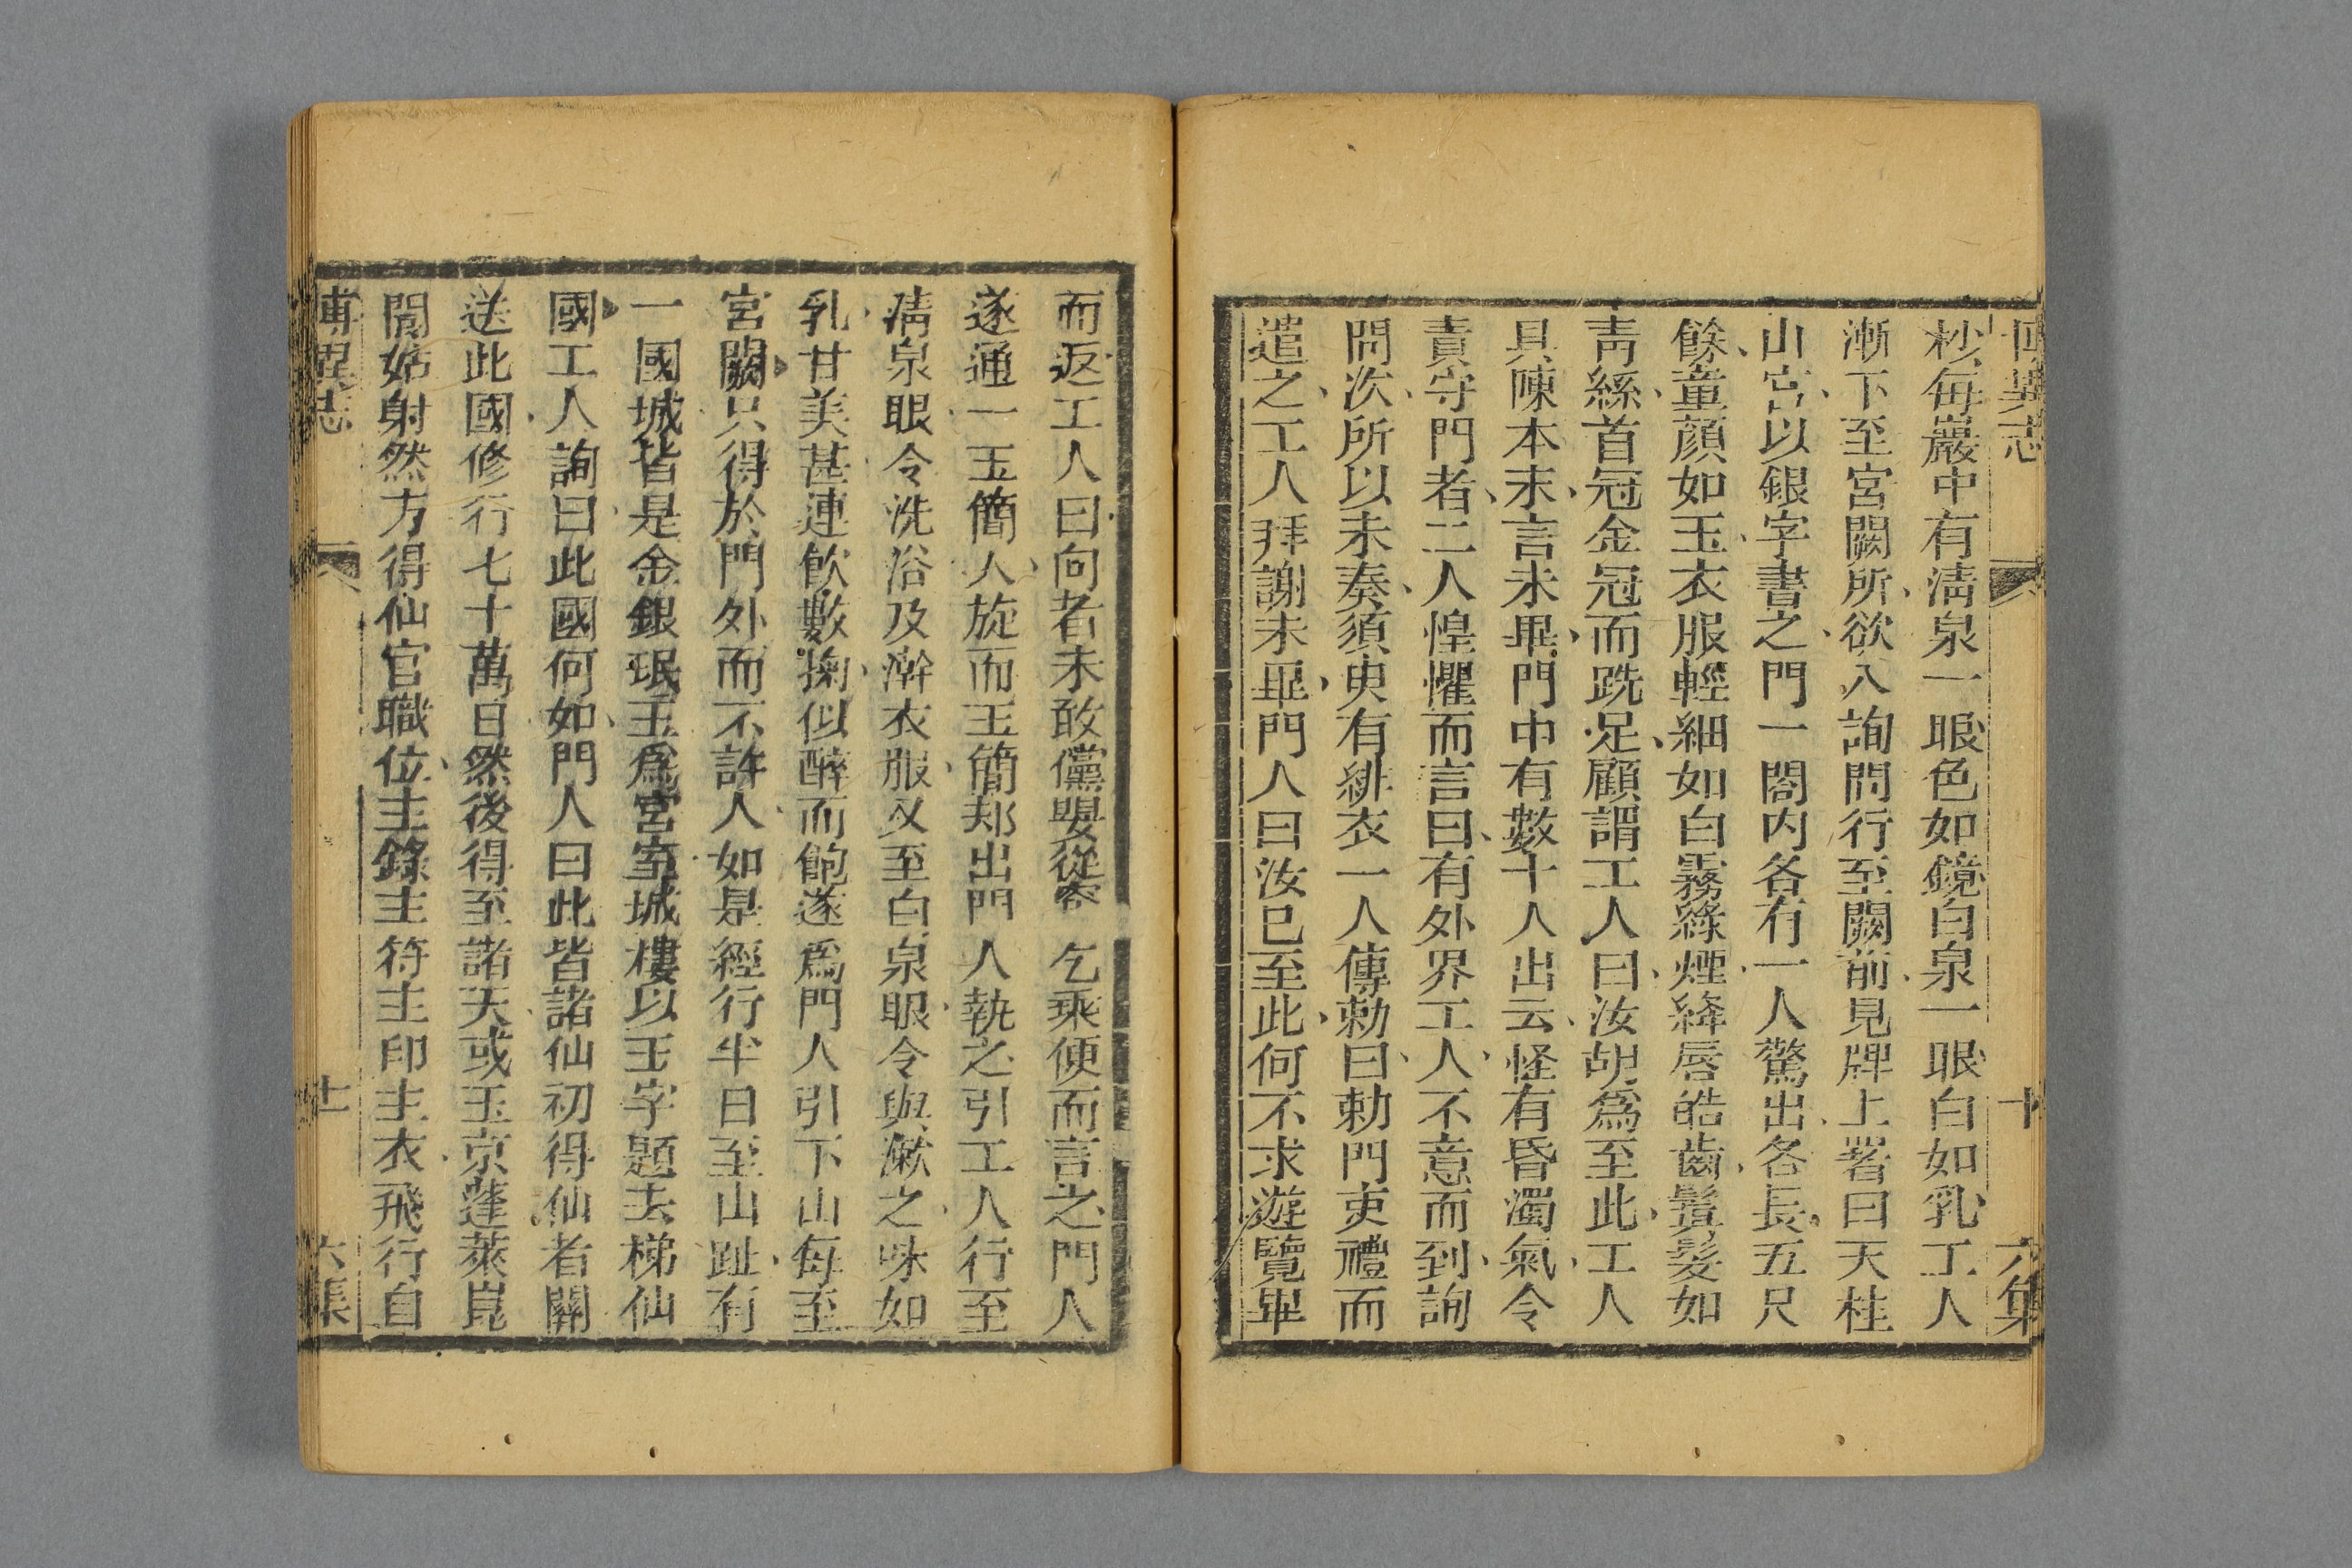 博異志 十 六集
杪每巖中有淸泉一眼色如鏡白泉一眼白如乳工人
漸下至宮闕所欲入詢問行至闕前見牌上署曰天桂
山宮以銀字書之門一閤内各有一人驚出各長五尺
餘童顏如玉衣服輕細如白霧綠煙絳唇皓齒鬒髮如
靑絲首冠金冠而跣足顧謂工人曰汝胡爲至此工人
具陳本末言未畢門中有數十人出云怪有昏濁氣令
責守門者二人惶懼而言曰有外界工人不意而到詢
問次所以未奏須臾有緋衣一人傳勅曰勅門吏禮而
遣之工人拜謝未畢門人曰汝已至此何不求遊覽畢
而返工人曰向者未敢儻賜從容乞乘便而言之門人
遂通一玉簡入旋而玉簡却出門人執之引工人行至
淸泉眼令洗浴及澣衣服又至白泉眼令與漱之味如
乳甘美甚連飮數掬似醉而飽遂爲門人引下山每至
宮闕只得於門外而不許人如是經行半日至山趾有
一國城皆是金銀珉玉爲宮室城樓以玉字題云梯仙
國工人詢曰此國何如門人曰此皆諸仙初得仙者關
送此國修行七十萬日然後得至諸天或玉京蓬萊崑
閬姑射然方得仙官職位主錄主符主印主衣飛行自
博異志 十一 六集